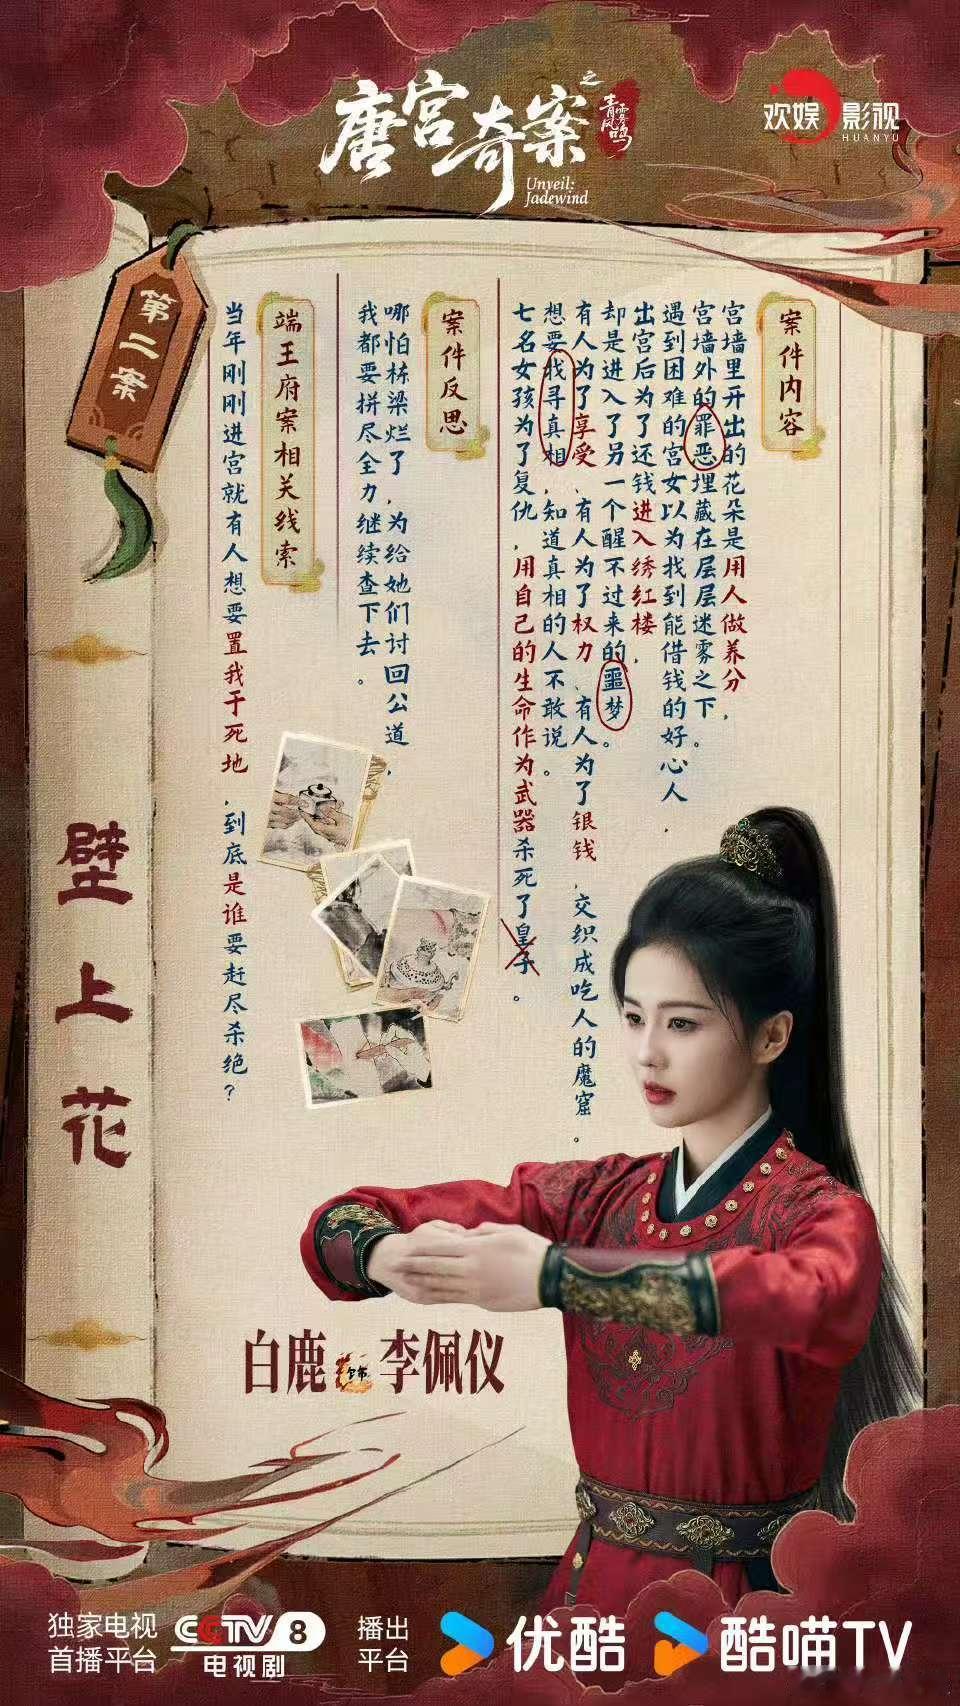 唐宫奇案之
青雾风鸣
Unveil:
Jadewind
欢娱影视
HUANYU
第二案
壁上花
案件内容
宫墙里开出的花朵是用人做养分，
宫墙外的罪恶埋藏在层层迷雾之下。
遇到困难的宫女以为找到能借钱的好心人，
出宫后为了还钱进入绣红楼，
却是进入了另一个醒不过来的噩梦。
有人为了享受、有人为了权力、有人为了银钱，交织成吃人的魔窟。
想要找寻真相，知道真相的人不敢说。
七名女孩为了复仇，用自己的生命作为武器杀死了皇子。
案件反思
哪怕栋梁烂了，为给她们讨回公道，
我都要拼尽全力继续查下去。
端王府案相关线索
当年刚刚进宫就有人想要置我于死地，到底是谁要赶尽杀绝？
白鹿 饰 李佩仪
独家电视
首播平台
CCTV 8
电视剧
播出
平台
优酷
酷喵TV